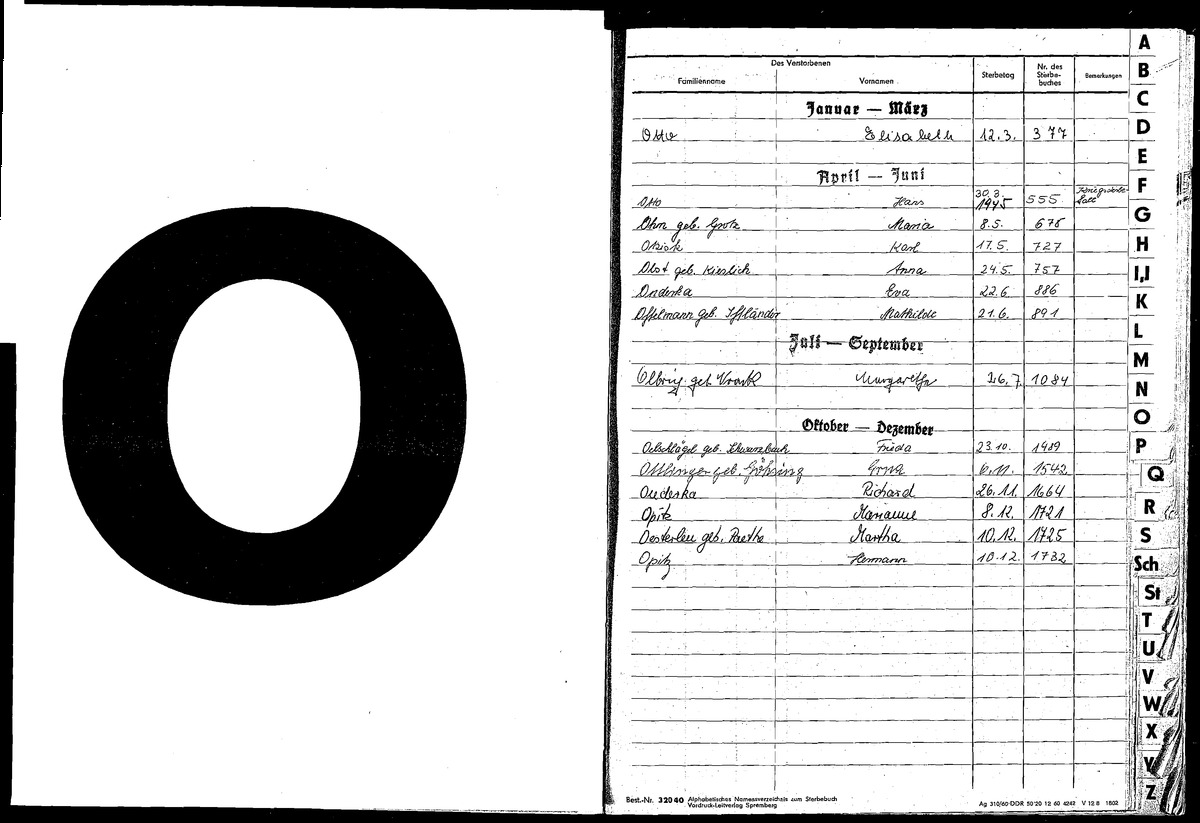 O
Des Verstorbenen
Familienname Vornamen Sterbetag Nr. des Sterbe-buches Bemerkungen
Januar — März
Otto Elisabeth 12.3. 377
April — Juni
Otto Hans 30.3. 1945 555
Ohm geb. Grotz Maria 8.5. 676
Karl 17.5. 727
Obst geb. Kieslich Anna 24.5. 757
Onderka Eva 22.6. 886
Offelmann geb. Iffländer Mathilde 21.6. 891
Juli — September
Olbrig geb. Margarethe 26.7. 1084
Oktober — Dezember
Oelschlägel geb. Schwarzbach Frieda 23.10. 1489
Ottlinger geb. Göhring Erna 6.11. 1542
Onderka Richard 26.11. 1664
Opitz Marianne 8.12. 1721
Oesterlen geb. Raethe Martha 10.12. 1725
Opitz Hermann 10.12. 1732
Best.-Nr. 32040 Alphabetisches Namensverzeichnis zum Sterbebuch
Vordruck-Leitverlag Spremberg
Ag 310/60 DDR 50 20 12 60 4242 V 12 8 1802
A
B
C
D
E
F
G
H
I,J
K
L
M
N
O
P
Q
R
S
Sch
St
T
U
V
W
X
Y
Z